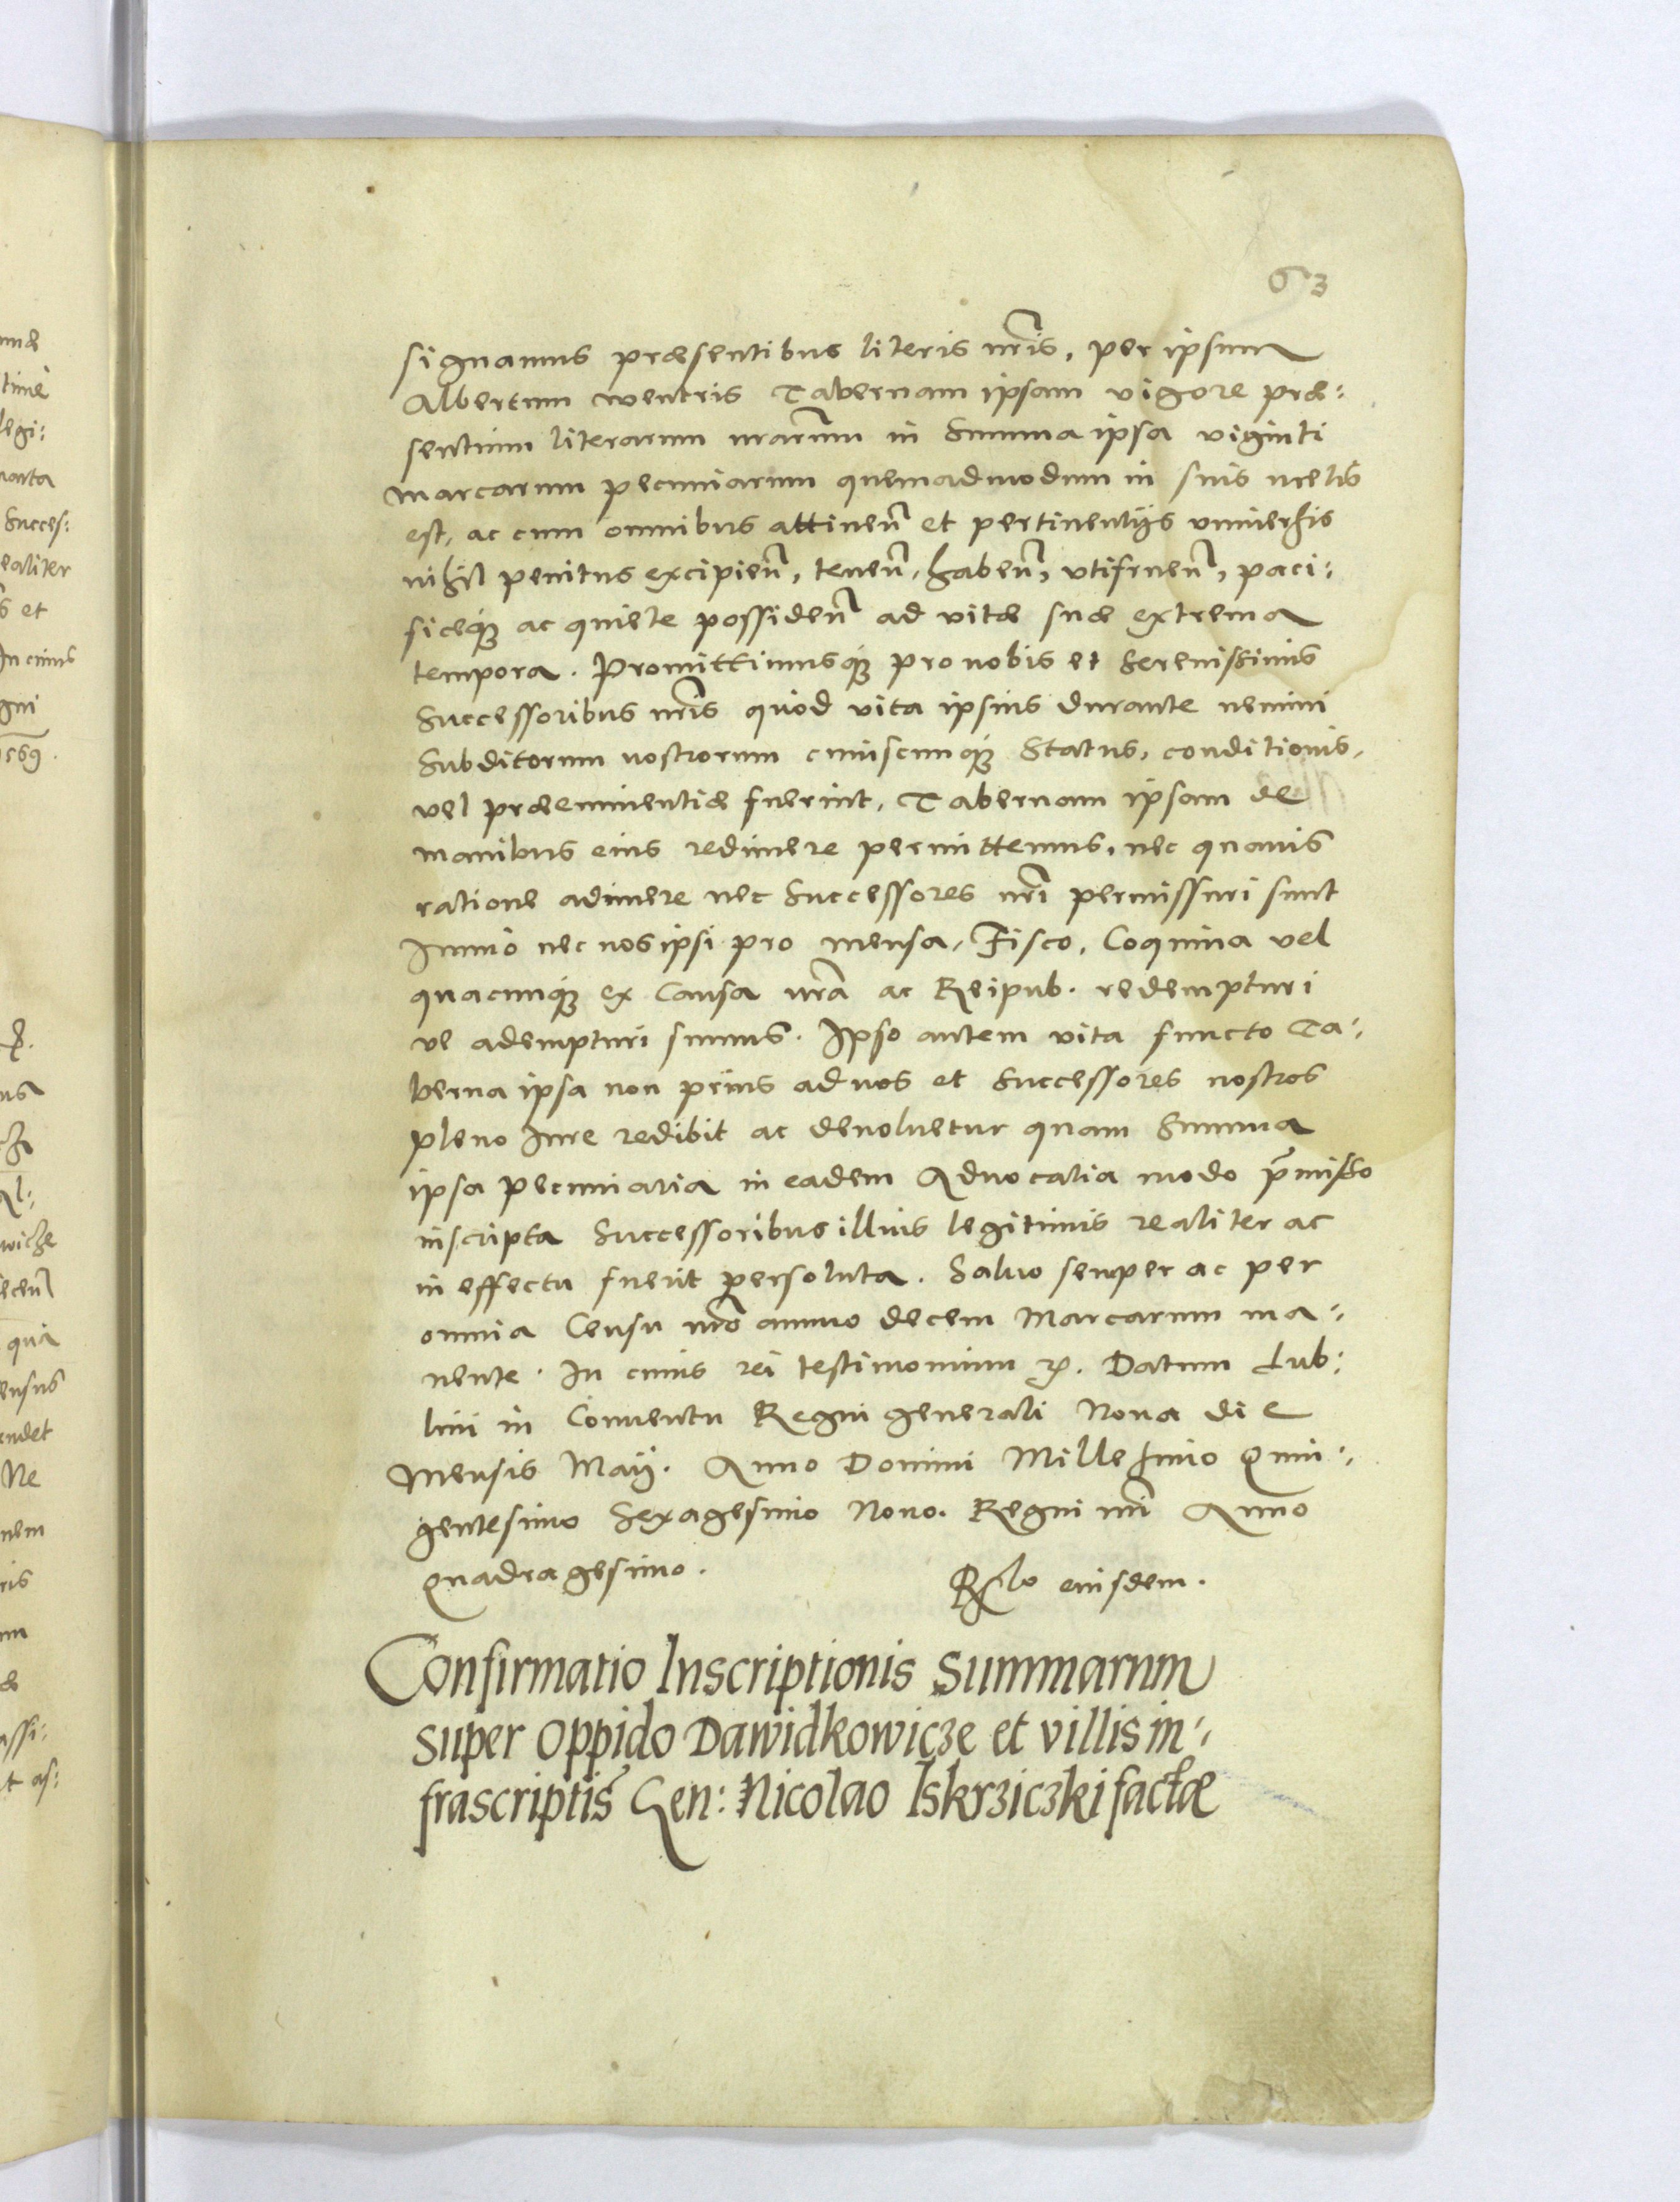 63
signamus præsentibus literis nr̃is, per ipsum
Albertum wentris Tabernam ipsam vigore præ:
sentium literarum nrarum̃ in Summa ipsa viginti
marcarum pecuniarum quemadmodum in suis metis
est, ac cum omnibus attinen̄ et pertinentijs vniuersis
nihil penitus excipien̄, tenen̄, haben̄, vtifruen̄, paci:
ficeq́ꝫ ac quiete possiden̄ ad vitæ suæ extrema
tempora. Promittimusq́ꝫ pro nobis et Serenissimis
Successoribus nr̃is quòd vita ipsius durante nemini
Subditorum nostrorum cuiuscunq́ꝫ Status, conditionis,
vel præeminentiæ fuerint, Tabernam ipsam de
manibus eius redimere permittemus, nec quauis
ratione adimere nec Successores nr̃i permissuri sunt
Immò nec nos ipsi pro mensa, Fisco, Coquina vel
quacunq́ꝫ ex Causa nr̃a ac Reipub. redempturi
ve adempturi sumus. Ipso autem vita functo Ta:
berna ipsa non prius ad nos et Successores nostros
pleno Iure redibit ac deuoluetur quam Summa
ipsa pecuniaria in eadem Aduocatia modo p̄misso
inscripta Successoribus illius legitimis realiter ac
in effectu fuerit persoluta. Saluo semper ac per
omnia Censu nr̃o annuo decem Marcarum ma:
nente. In cuius rei testimonium ꝛc. Datum Lub:
lini in Conuentu Regni generali Nona die
Mensis Maij. Anno Domini Millesimo Quin:
gentesimo Sexagesimo Nono. Regni nr̃i Anno
Quadragesimo.
Relo eiusdem.
Confirmatio Inscriptionis Summarum
super oppido Dawidkowicze et villis in:
frascriptis Gen: Nicolao Iskrziczki factæ